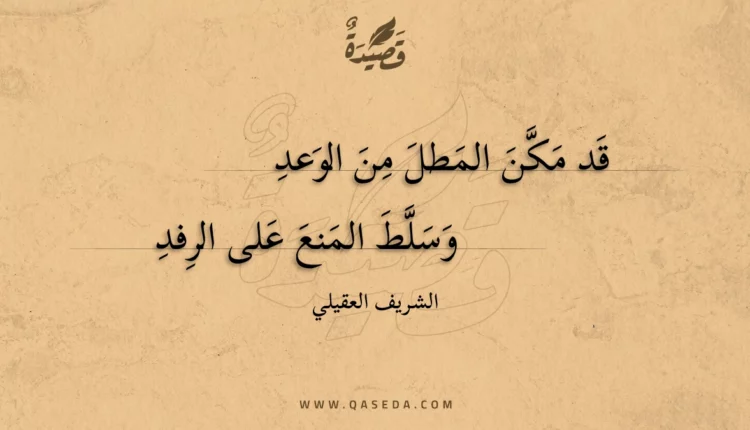 قَصِيْدَةٌ
قَد مَكَّنَ المَطلَ مِنَ الوَعدِ
وَسَلَّطَ المَنعَ عَلى الرِفدِ
الشريف العقيلي
WWW.QASEDA.COM